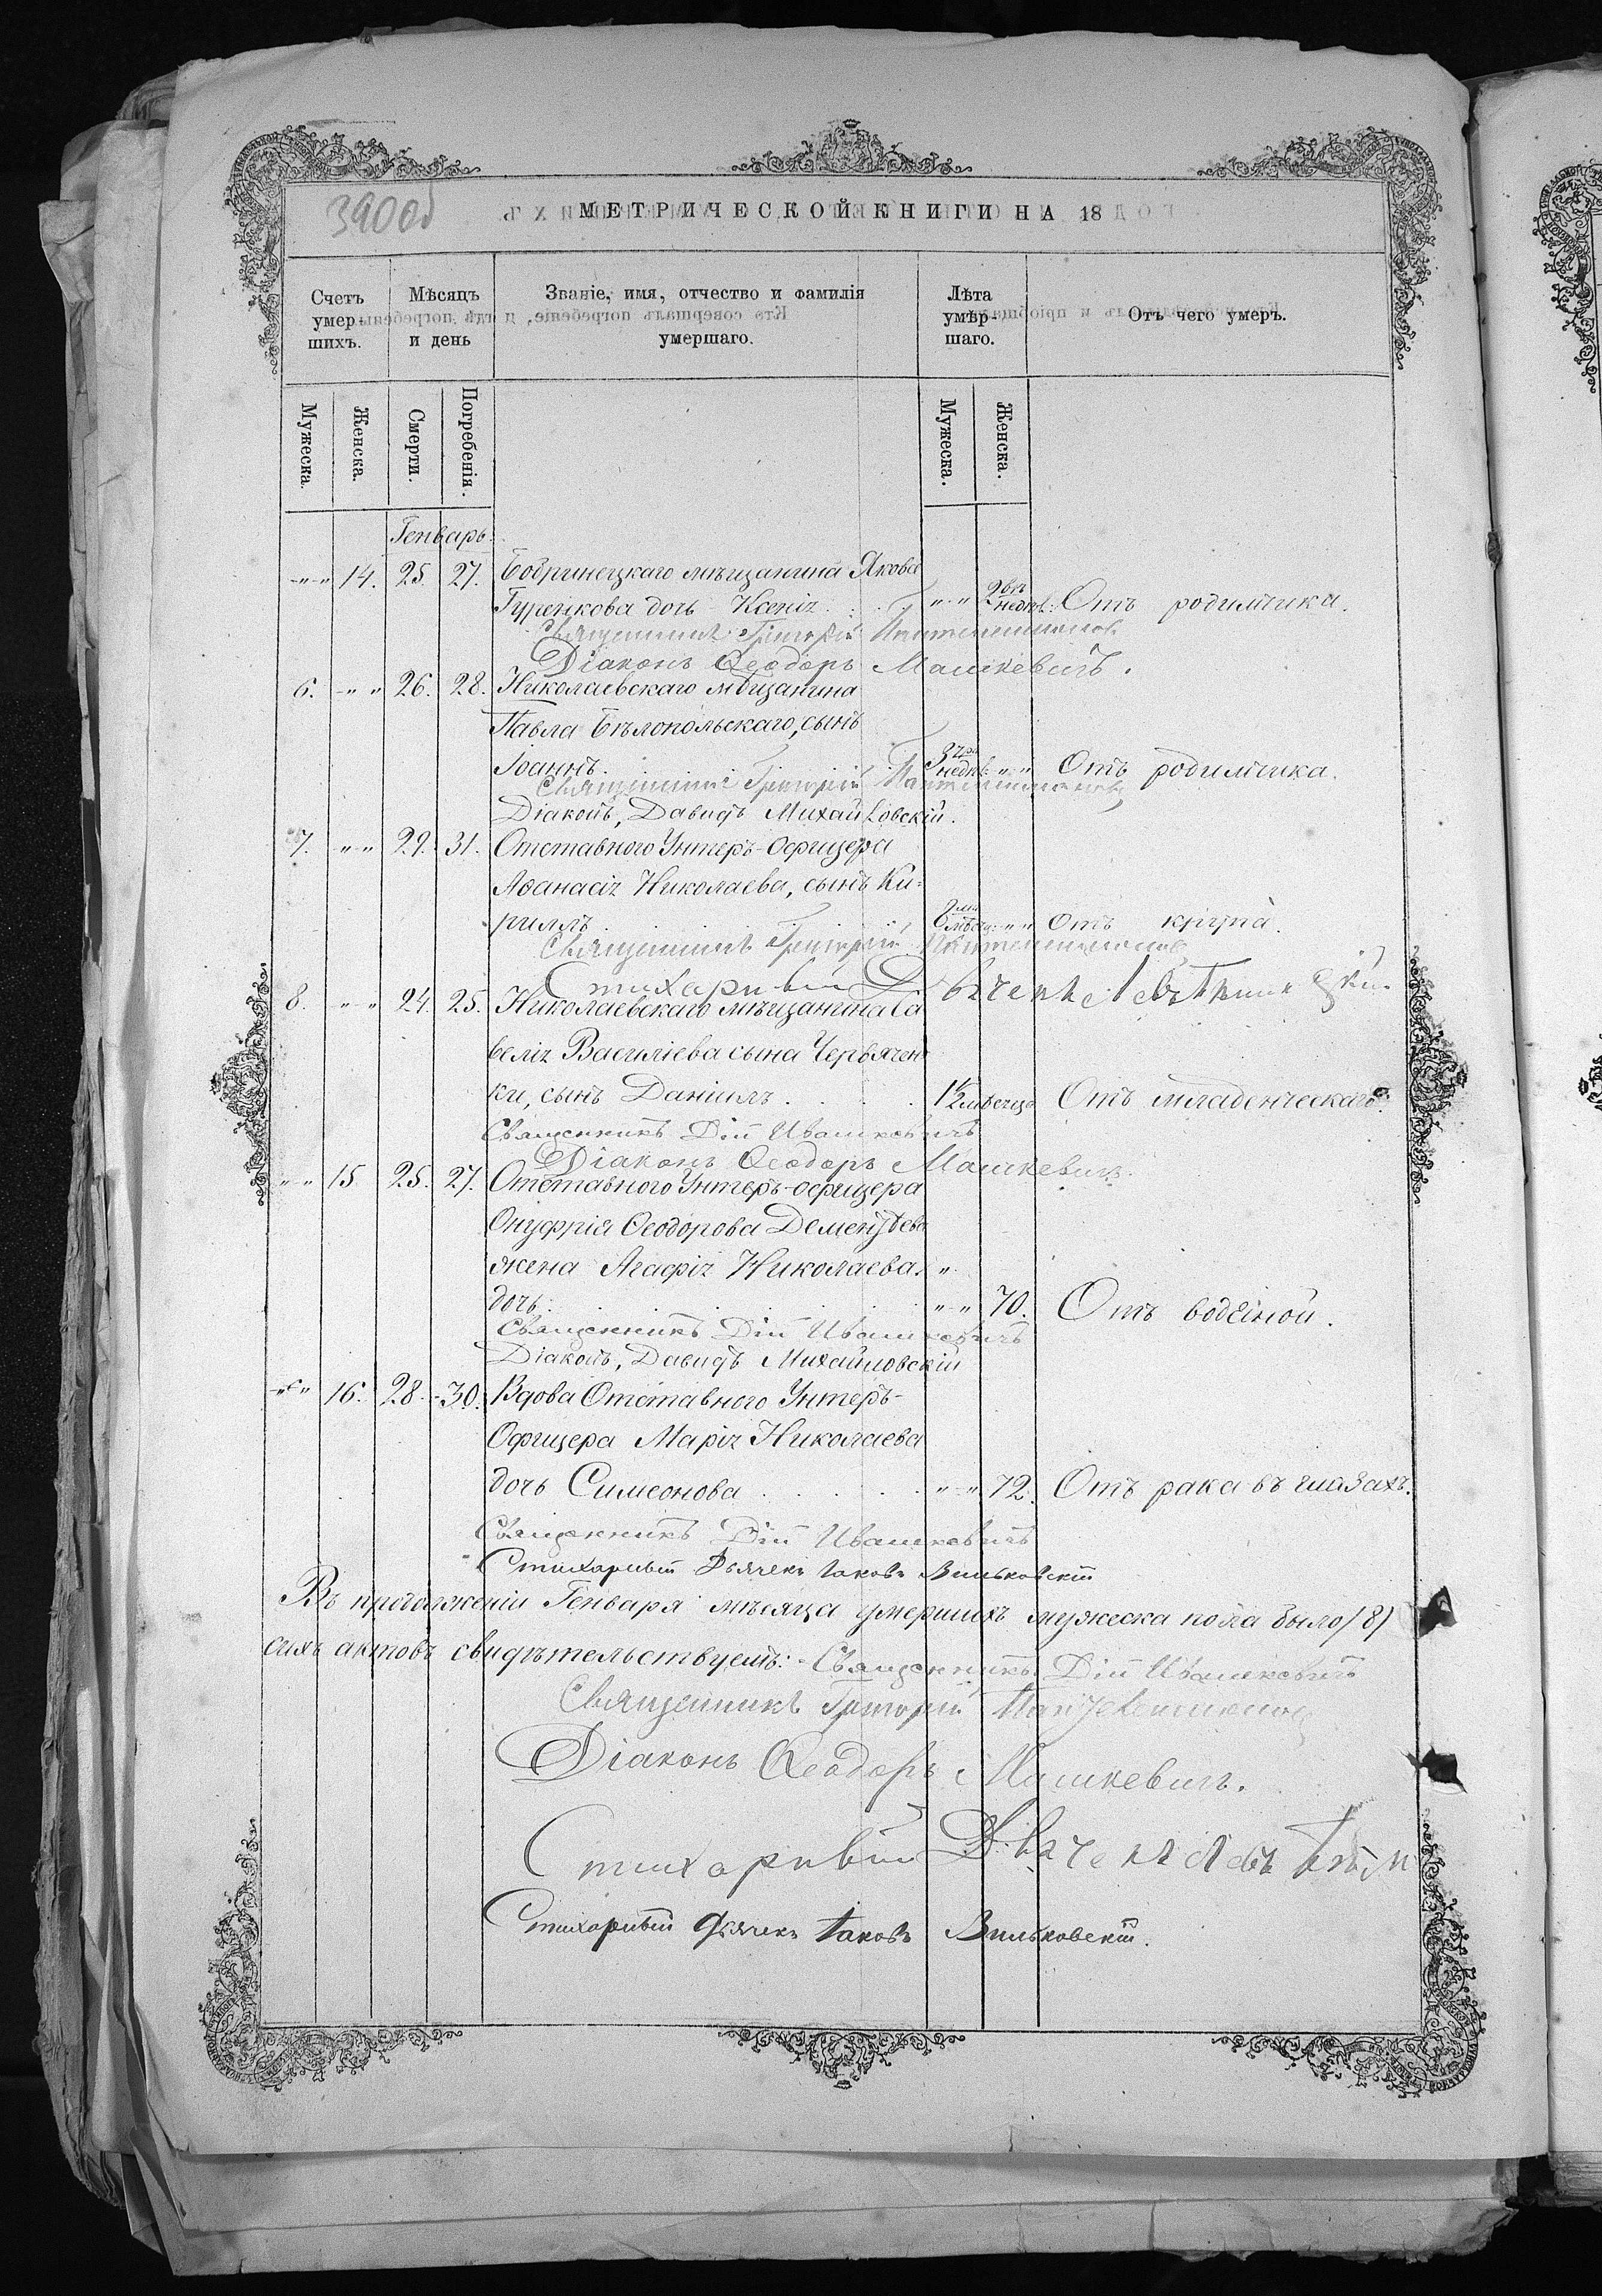 390об
МЕТРИЧЕСКОЙ КНИГИ НА 18
Счетъ умер- шихъ.
Мѣсяцъ и день
Званіе, имя, отчество и фамилія умершаго.
Лѣта умер- шаго.
Отъ чего умеръ.
Мужеска.
Женска.
Смерти.
Погребенія.
Мужеска.
Женска.
Генварь.
-"-" 14. 25. 27. Бобринецкаго мѣщанина Якова
Гуренкова дочь Ксенія . . . "-" 2 недѣл: Отъ родимчика.
Священникъ Григорій
Діаконъ Ѳеодоръ Машкевичъ.
6. -"-" 26. 28. Николаевскаго мѣщанина
Павла Бѣлопольскаго, сынъ
Іоаннъ. . . . 3 недѣл: "-" Отъ родимчика.
Священникъ Григорій
Діаконъ, Давидъ Михайловскій.
7. "-" 29. 31. Отставного Унтеръ-Офицера
Аѳанасія Николаева, сынъ Ки-
риллъ . . . "-" Отъ крупа.
Священникъ Григорій
Стихарный
8. "-" 24. 25. Николаевскаго мѣщанина Са
велія Василіева сына Червячен
ки, сынъ Даніилъ . . . . 1½ мѣсяца Отъ младенческаго.
Священникъ Дій Ивашкевичъ
Діаконъ Ѳеодоръ Машкевичъ.
"-" 15 25. 27. Отставного Унтеръ-офицера
Онуфрія Ѳеодорова Дементьева
жена Агафія Николаева "
дочь . . . "-" 70. Отъ водяной.
Священникъ Дій Ивашкевичъ
Діаконъ, Давидъ Михайловскій
-"-" 16. 28. 30. Вдова Отставного Унтеръ-
Офицера Марія Николаева
дочь Симеонова . . . . . "-" 72. Отъ рака въ глазахъ.
Священникъ Дій Ивашкевичъ
Стихарный Дьячекъ Іаковъ Вильковскій
Въ продолженіи Генваря мѣсяца умершихъ мужеска пола было (8)
сихъ актовъ свидѣтельствуемъ: Священникъ Дій Ивашкевичъ
Священникъ Григорій
Діаконъ Ѳеодоръ Машкевичъ.
Стихарный
Стихарный Дьячекъ Іаковъ Вильковскій.